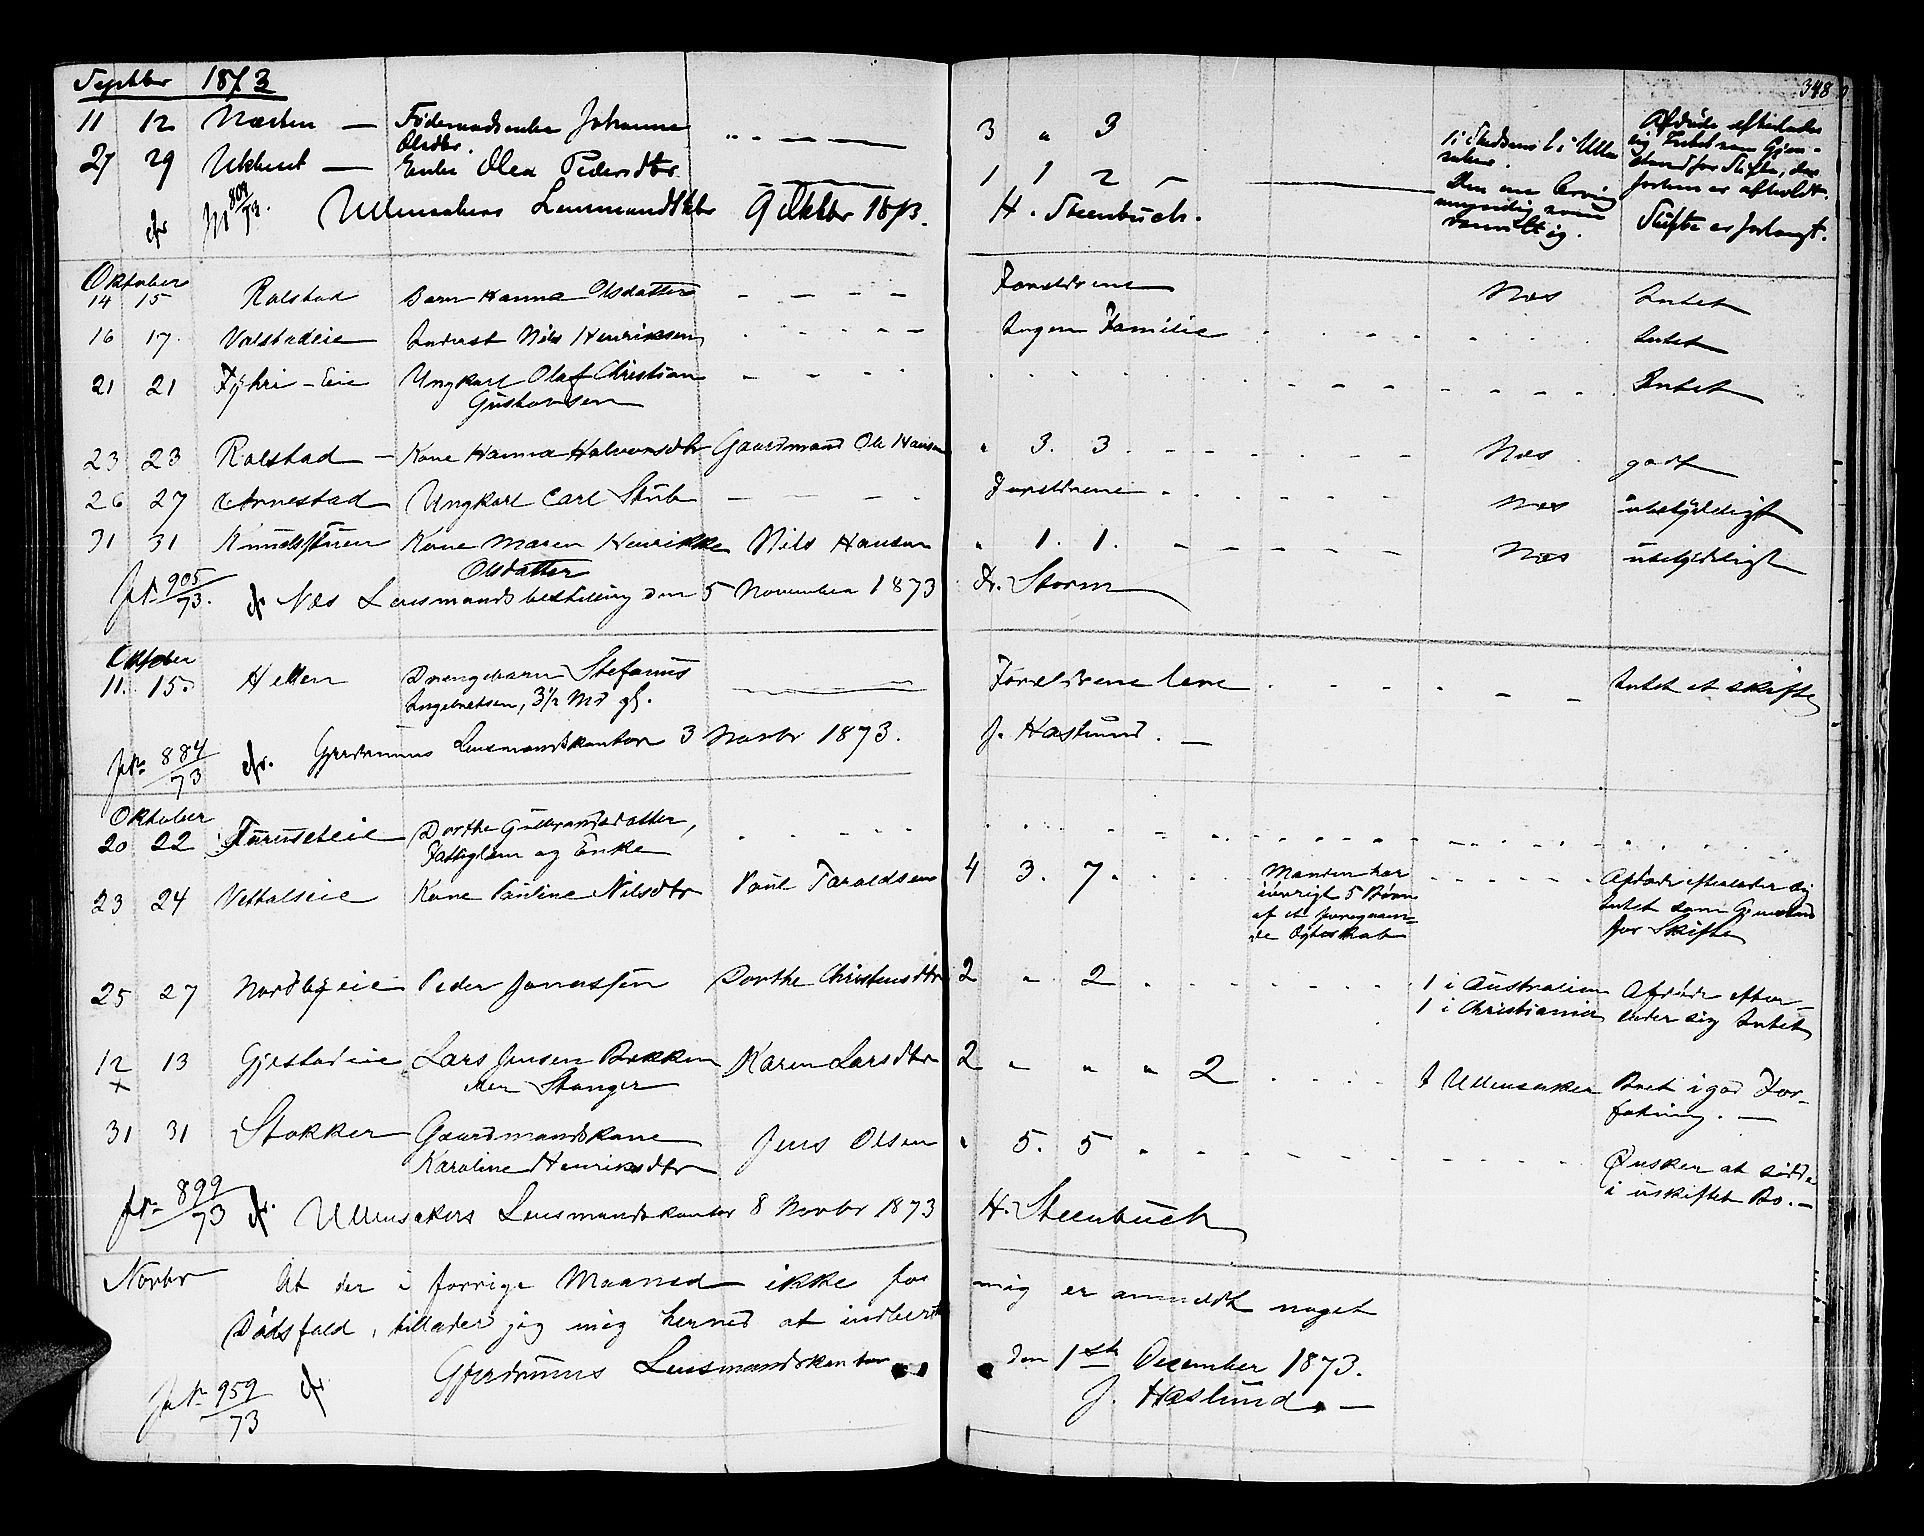 Septbr 1873
348
11 12 Næsten — Födemandsenke Johanne Olsdtr. 3 " 3
Afdöde efterlader sig Intet som Gjenstand for Skifte,
27 29 Ukkust — Enke Olea Pedersdtr 1 1 2 —
Den ene Arving umyndig
Skifte er forlangt.
cfr JN 809/73. Ullensakers Lensmandsktr 9 Oktbr 1873. H. Steenbuch.
Oktober
14 15 Ralstad Barn Hanna Olsdatter - - - - Forældrene Næs Intet
16 17. Valstadeie Inderst Nils Henriksen - - - - Ingen Familie Intet
21 21 Fjhri-Eie Ungkarl Olaf Christian Gustavsen - - - - Intet
23 23 Ralstad — Kone Hanna Halvorsdtr Gaardmand Ole Hansen " 3. 3. Næs godt
26 27 Arnestad Ungkarl Carl Stub - - - - Forældrene Næs ubetydeligt
31 31 Knudsstuen Kone Maren Henrikke Olsdatter Nils Hansen " 1. 1. Næs ubetydeligt
JN 905/73. cfr Næs Lensmandsbestilling den 5 November 1873 Fr. Storm
Oktober
11. 15. Hellen Drengebarn Stefanus Ingebretsen, 3½ Md gl. Forældrene leve Intet at skifte
JN 884/73 cfr. Gjerdrums Lensmandskontor 3 Novbr 1873. J. Haslund. —
Oktober
20 22 Furuseteie Dorthe Gulbrandsdatter, Fattiglem og Enke
23 24 Vethaleie Kone Pauline Nilsdtr Poul Taraldsen 4 3. 7. Manden har iövrigt 5 Börn af et foregaaende Ægteskab Afdöde efterlader sig Intet som Gjenstand for Skifte
25 27 Nordbyeie Peder Jonassen Dorthe Christensdtr 2 " 2 1 i Australien 1 i Christiania Afdöde efterlader sig Intet
12 13 Gjestadeie Lars Jensen Bekken eller Stanger Karen Larsdtr 2 " " " 2 I Ullensaker Boet i god Forfatning. —
x
31 31 Stokker Gaardmandskone Karoline Henriksdtr Jens Olsen " 5. 5 Önsker at sidde i uskiftet Bo. —
JN 899/73 cfr. Ullensakers Lensmandskontor 8 Novbr 1873 H. Steenbuch
Novbr At der i forrige Maaned ikke for mig er anmeldt noget
Dödsfald, tillader jeg mig herved at indberette
Gjerdrums Lensmandskontor den 1ste December 1873.
JN 959/73 cfr J. Haslund. —